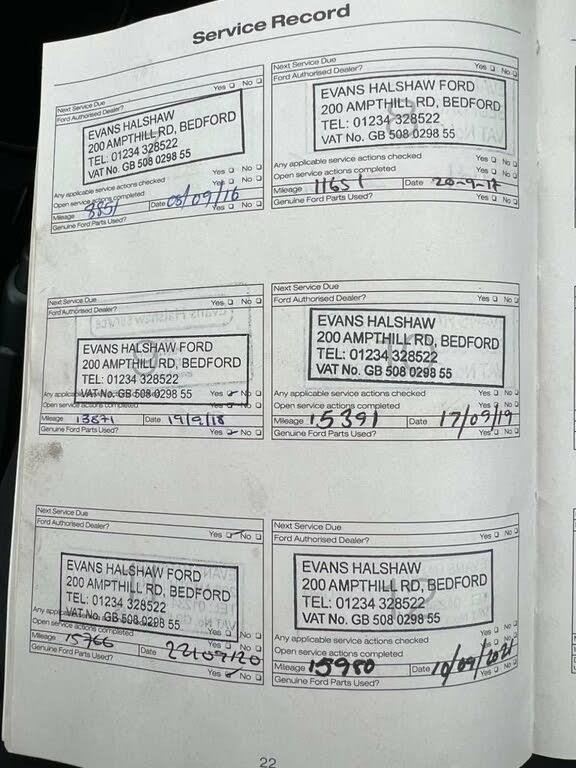 Service Record
Next Service Due
Ford Authorised Dealer? Yes No
EVANS HALSHAW
200 AMPTHILL RD, BEDFORD
TEL: 01234 328522
VAT No. GB 508 0298 55
Any applicable service actions checked Yes No
Open service actions completed Yes No
Mileage 8851 Date 08/09/16
Genuine Ford Parts Used? Yes No
Next Service Due
Ford Authorised Dealer? Yes No
EVANS HALSHAW FORD
200 AMPTHILL RD, BEDFORD
TEL: 01234 328522
VAT No. GB 508 0298 55
Any applicable service actions checked Yes No
Open service actions completed Yes No
Mileage 11651 Date 20-9-17
Genuine Ford Parts Used? Yes No
Next Service Due
Ford Authorised Dealer? Yes No
EVANS HALSHAW FORD
200 AMPTHILL RD, BEDFORD
TEL: 01234 328522
VAT No. GB 508 0298 55
Yes No
Open service actions completed Yes No
Mileage 13871 Date 19/9/18
Genuine Ford Parts Used? Yes No
Next Service Due
Ford Authorised Dealer? Yes No
EVANS HALSHAW
200 AMPTHILL RD, BEDFORD
TEL: 01234 328522
VAT No. GB 508 0298 55
Any applicable service actions checked Yes No
Open service actions completed Yes No
Mileage 15391 Date 17/09/19
Genuine Ford Parts Used? Yes No
Next Service Due
Ford Authorised Dealer? Yes No
EVANS HALSHAW FORD
200 AMPTHILL RD, BEDFORD
TEL: 01234 328522
VAT No. GB 508 0298 55
Open service actions completed Yes No
Mileage 15766 Date 22/09/20
Genuine Ford Parts Used? Yes No
Next Service Due
Ford Authorised Dealer? Yes No
EVANS HALSHAW
200 AMPTHILL RD, BEDFORD
TEL: 01234 328522
VAT No. GB 508 0298 55
Any applicable service actions checked Yes No
Open service actions completed Yes No
Mileage 15980 Date 10/09/2021
Genuine Ford Parts Used? Yes No
22